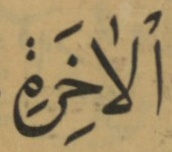 اْلاٰخِرَةِ